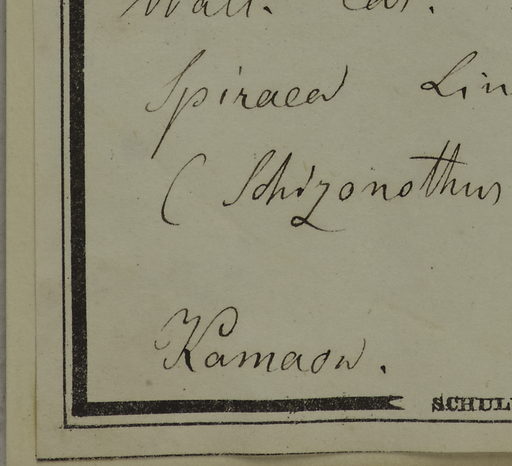 Wall. Cat.
Spiraea Lin
( Schizonothus
Kamaon.
SCHUL